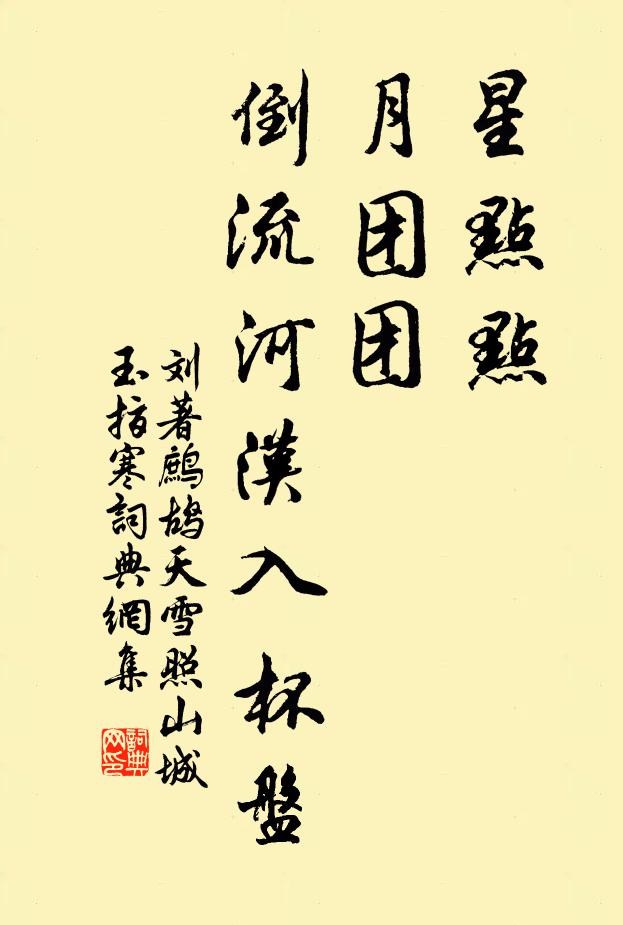 星點點
月团团
倒流河漢入杯盤
刘著鷓鴣天雪照山城
玉指寒詞典網集
詞典
网印